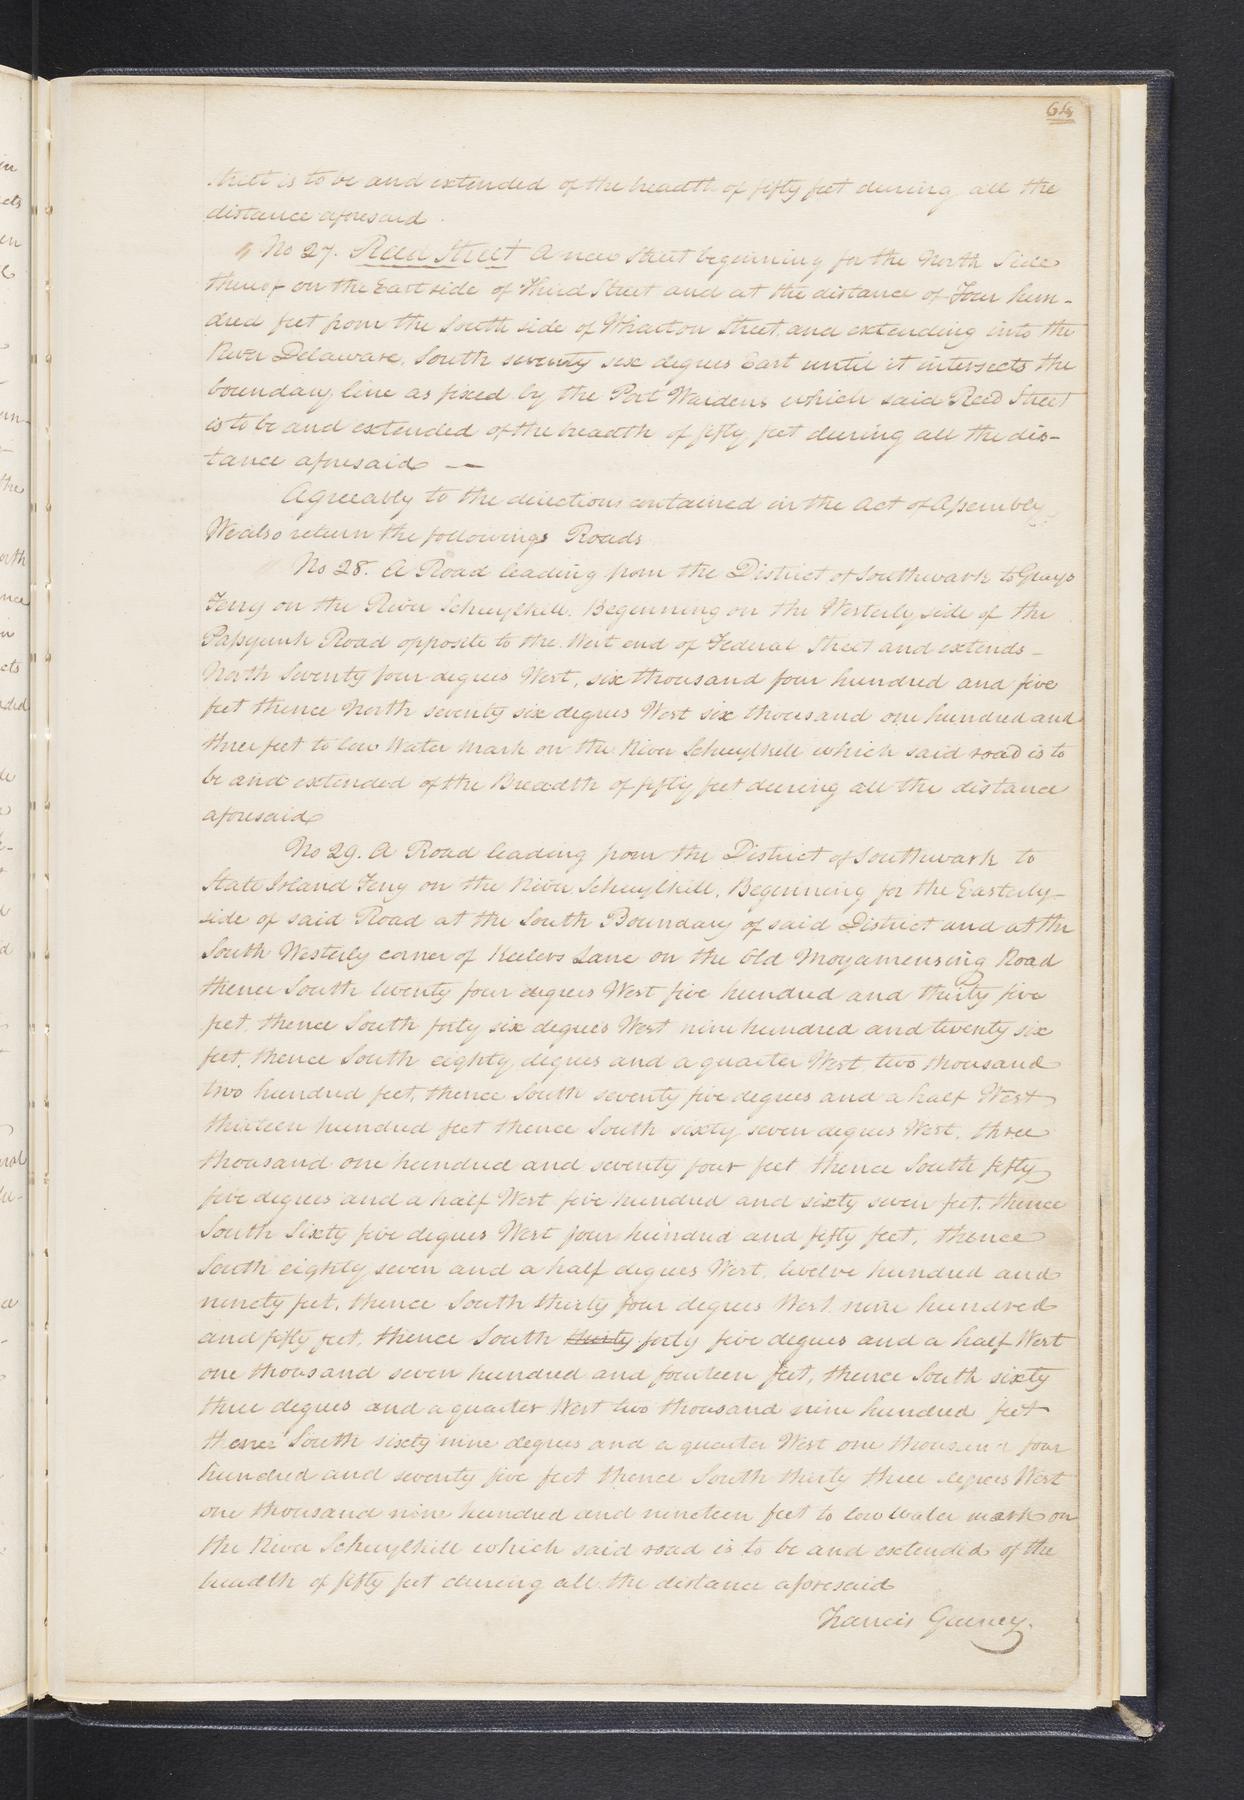 64
Street is to be and extended of the breadth of fifty feet during all the
distance aforesaid.
No 27. Reed Street A new Street beginning for the North Side
thereof on the East side of Third Street and at the distance of Four hun-
dred feet from the South side of Wharton Street, and extending into the
River Delaware, South seventy six degrees East until it intersects the
boundary line as fixed by the Port Wardens which said Reed Street
is to be and extended of the breadth of fifty feet during all the dis-
tance aforesaid —
Agreeably to the directions contained in the Act of Assembly
We also return the followings Roads
No 28. A Road leading from the District of Southwark to Grays
Ferry on the River Schuylkill. Beginning on the Westerly side of the
Passyunk Road opposite to the West end of Federal Street and extends
North Seventy four degrees West, six thousand four hundred and five
feet thence North seventy six degrees West six thousand one hundred and
three feet to low Water mark on the River Schuylkill which said road is to
be and extended of the Breadth of fifty feet during all the distance
aforesaid
No 29. A Road leading from the District of Southwark to
State Island Ferry on the River Schuylkill, Beginning for the Easterly
side of said Road at the South Boundary of said District and at the
South Westerly corner of Keelers Lane on the Old Moyamensing Road
thence South twenty four degrees West five hundred and thirty five
feet, thence South forty six degrees West nine hundred and twenty six
feet, thence South eighty degrees and a quarter West, two thousand
two hundred feet, thence South seventy five degrees and a half West
thirteen hundred feet thence South sixty seven degrees West, three
thousand one hundred and seventy four feet thence South fifty
five degrees and a half West five hundred and sixty seven feet, thence
South Sixty five degrees West four hundred and fifty feet, thence
South eighty seven and a half degrees West, twelve hundred and
ninety feet, thence South thirty four degrees West nine hundred
and fifty feet, thence South thirty forty five degrees and a half West
one thousand seven hundred and fourteen feet, thence South sixty
three degrees and a quarter West two thousand nine hundred feet
thence South sixty nine degrees and a quarter West one thousand four
hundred and seventy five feet thence South thirty three degrees West
one thousand nine hundred and nineteen feet to low water mark on
the River Schuylkill which said road is to be and extended of the
breadth of fifty feet during all the distance aforesaid
Francis Gurney.